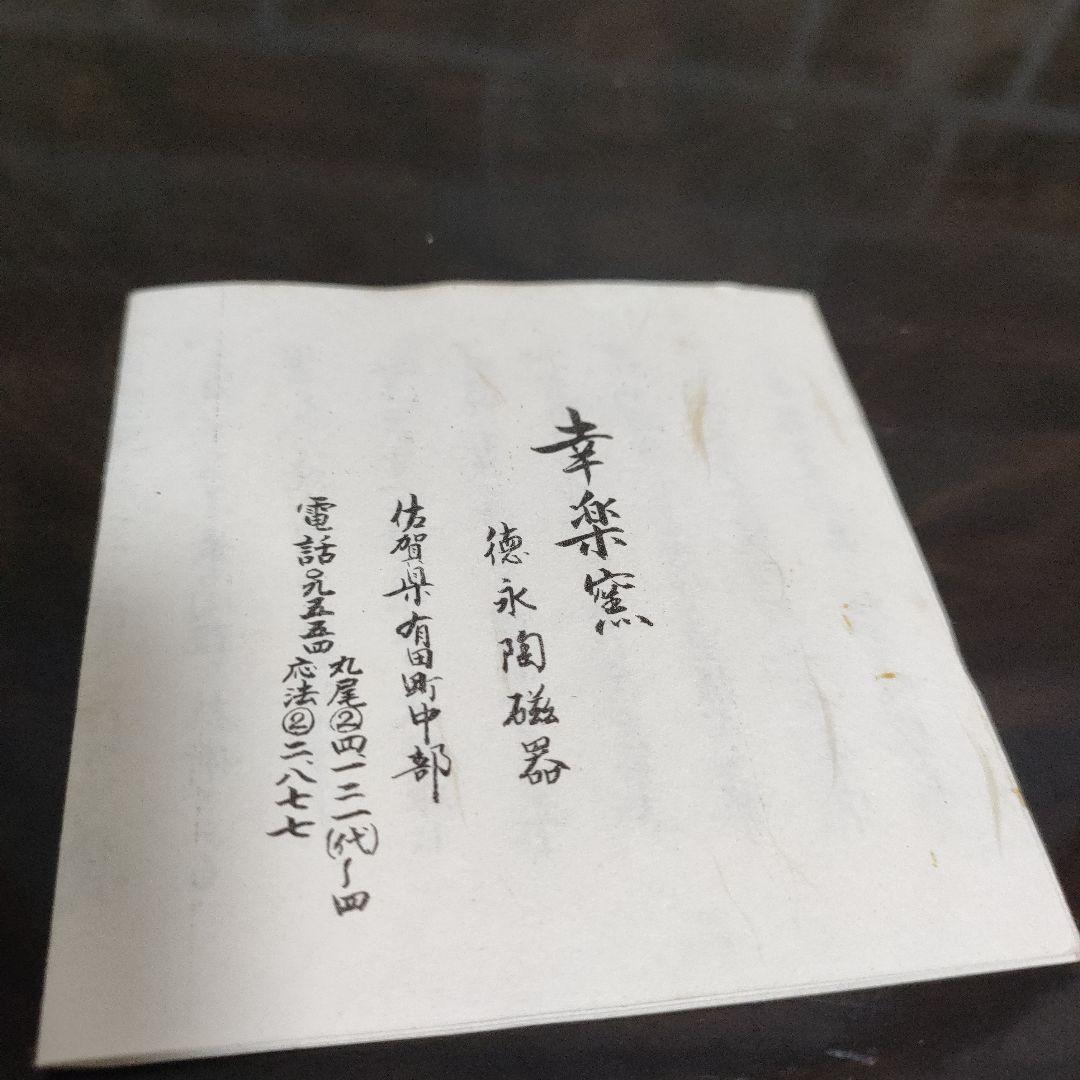 幸楽窯
徳永陶磁器
佐賀県有田町中部
電話〇九五五四
丸尾②四、一二一(代)〜四
応法②二、八七七